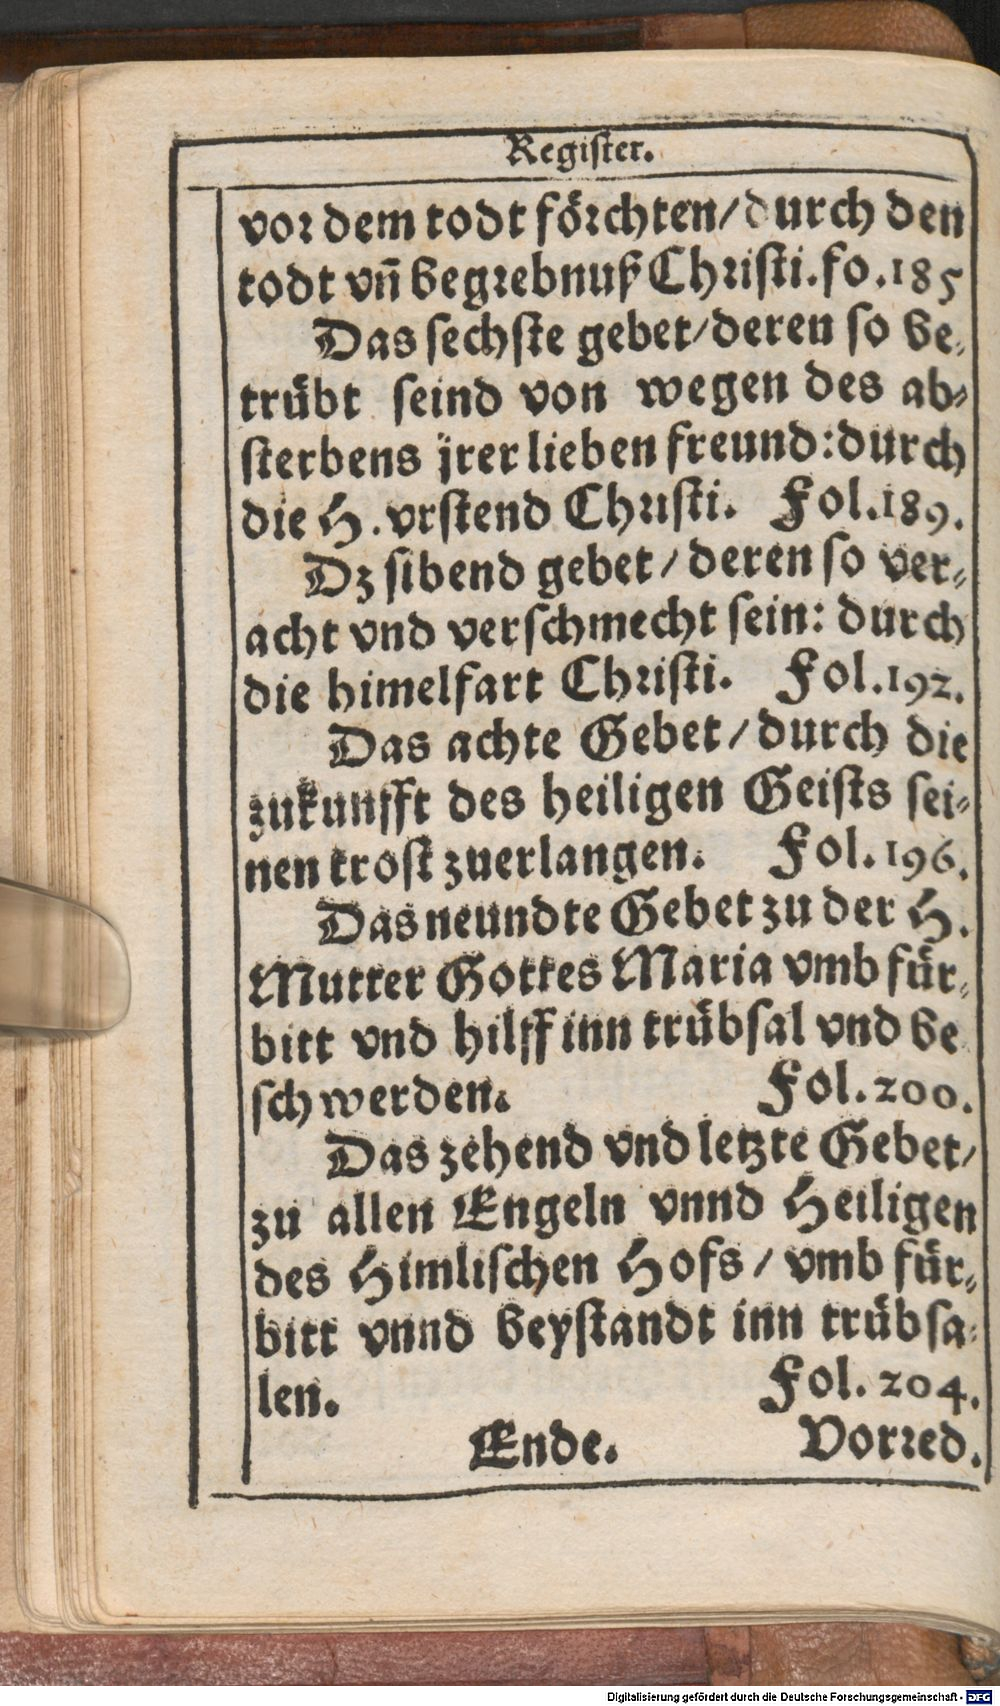 Register.
vor dem todt förchten/durch den
todt vñ begrebnuß Christi.fo.185
Das sechste gebet/deren so be-
trübt seind von wegen des ab-
sterbens jrer lieben freund:durch
die H.vrstend Christi. Fol.189.
Dz sibend gebet/deren so ver-
acht vnd verschmecht sein: durch
die himelfart Christi. Fol.192.
Das achte Gebet/durch die
zukunfft des heiligen Geists sei-
nen trost zuerlangen. Fol.196.
Das neundte Gebet zu der H.
Mutter Gottes Maria vmb für-
bitt vnd hilff inn trübsal vnd be
schwerden. Fol.200.
Das zehend vnd letzte Gebet/
zu allen Engeln vnnd Heiligen
des Himlischen Hofs/vmb für-
bitt vnnd beystandt inn trübsa-
len. Fol.204.
Ende. Vorred.
Digitalisierung gefördert durch die Deutsche Forschungsgemeinschaft - DFG